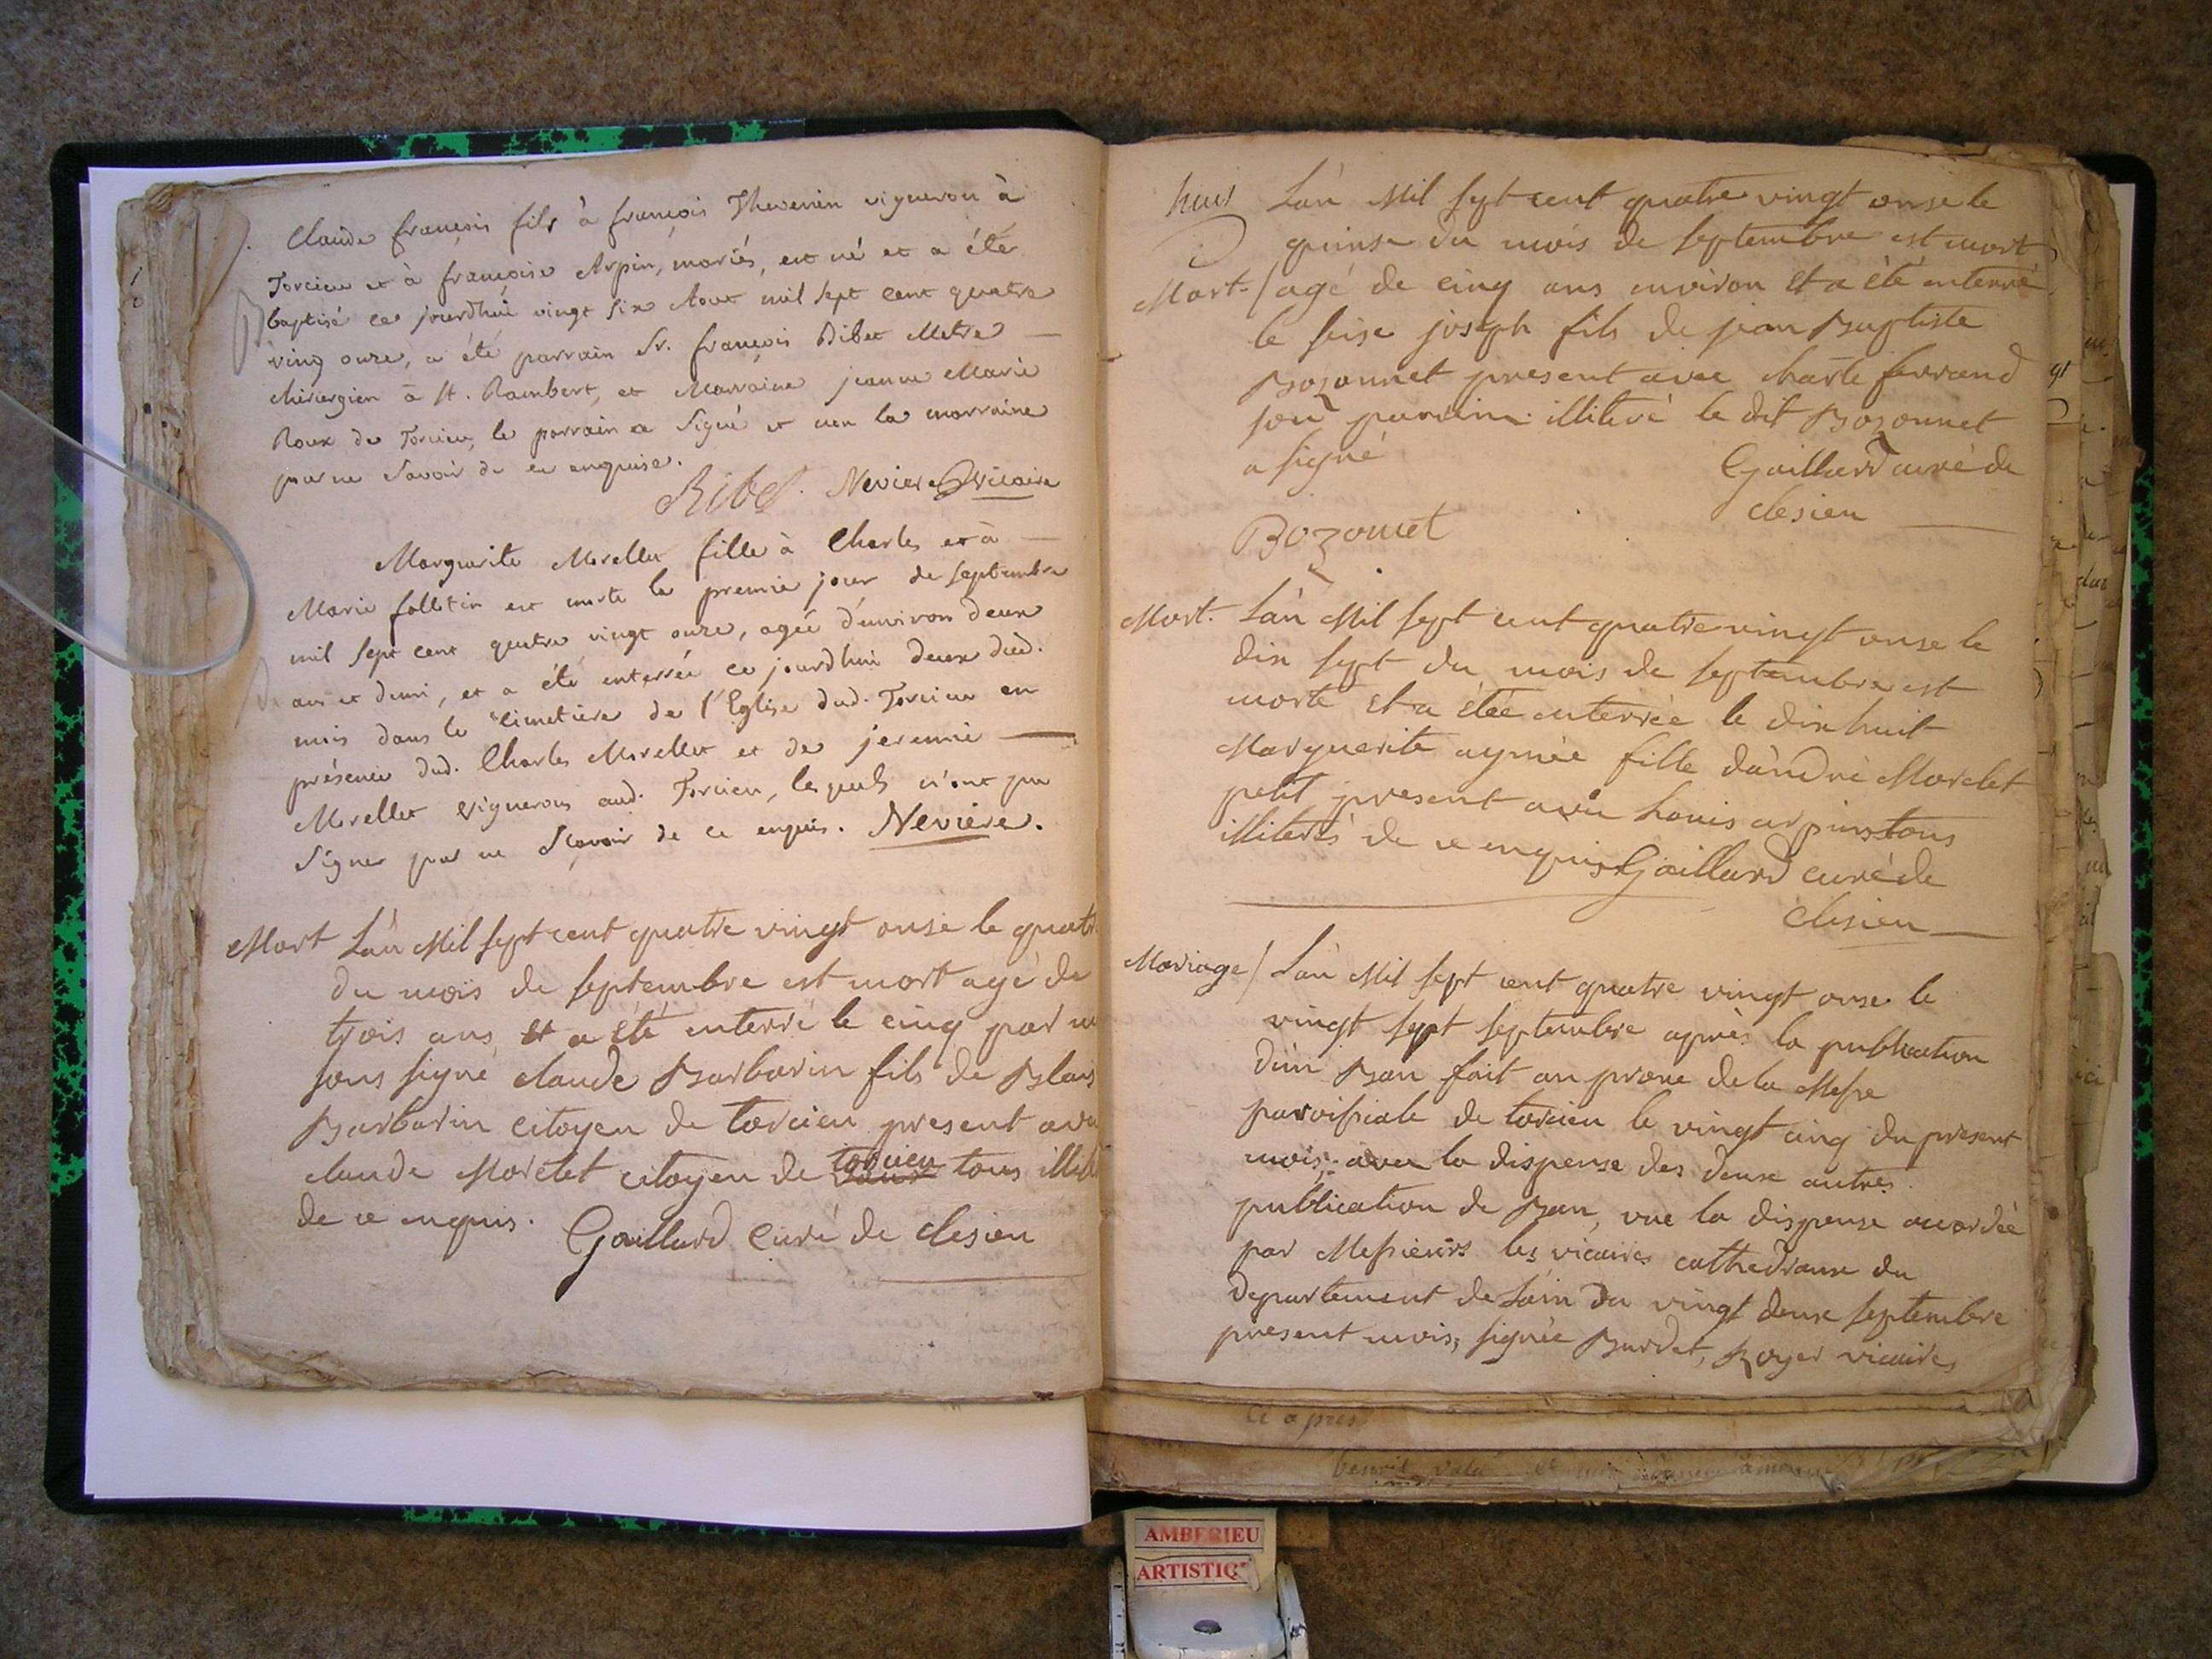 Claude françois fils à françois Thevenin vigneron à
Torcieu et à françoise Arpin, mariés, est né et a été
B baptisé ce jourdhui vingt six Aout mil sept cent quatre
ving onze, a été parrain Sr. françois Ribet Metre
chirurgien à St. Rambert, et Marraine jeanne Marie
Roux de Torcieu, le parrain a signé et non la marraine
pour ne savoir de ce enquise.
Ribet. Neviere vicaire
Marguerite Morellet fille à Charles et à
Marie follitin est morte le premie jour de septembre
mil sept cent quatre vingt onze, agée d'environ deux
ans et demi, et a été enterrée ce jourdhui deux dud.
mois dans le cimetière de l'Eglise dud. Torcieu en
présence dud. Charles Morellet et de jeremie
Morellet vignerons aud. Torcieu, lesquels n'ont pu
signer pour ne sçavoir de ce enquis. Nevière.
Mort L'an Mil sept cent quatre vingt onse le quatr
du mois de septembre est mort agé de
trois ans et a été enterré le cinq par
sous signé claude Barbarin fils de Blais
Barbarin citoyen de torcieu present ave
claude Morelet citoyen de torcieu tous illit
de ce enquis. Gaillard Curé de clesieu
L'an Mil sept cent quatre vingt onse le
quinse du mois de septembre est mort
Mort / agé de cinq ans environ et a été enterré
le seise joseph fils de jean Baptiste
Bozonnet present avec charle ferrand
son parrain illiteré le dit Bozonnet
a signé Gaillard curé de
clesieu
Bozonet
Mort. L'an Mil sept cent quatre vingt onse le
dix sept du mois de septembre est
morte et a étée enterrée le dixhuit
Marguerite aymée fille d'andré Morelet
petit present avec Louis arpin tous
illiterés de ce enquis Gaillard curé de
clesieu
Mariage / L'an Mil sept cent quatre vingt onse le
vingt sept septembre après la publication
d'un Ban fait au prone de la Messe
paroissiale de torcieu le vingt cinq du present
mois, avec la dispense des deux autres
publication de Ban, vue la dispense accordée
par Messieurs les vicaires cathedraux du
departement de L'ain du vingt deux septembre
present mois, signée Burdet, Royer vicaires
Ci apres
AMBERIEU
ARTISTIQ